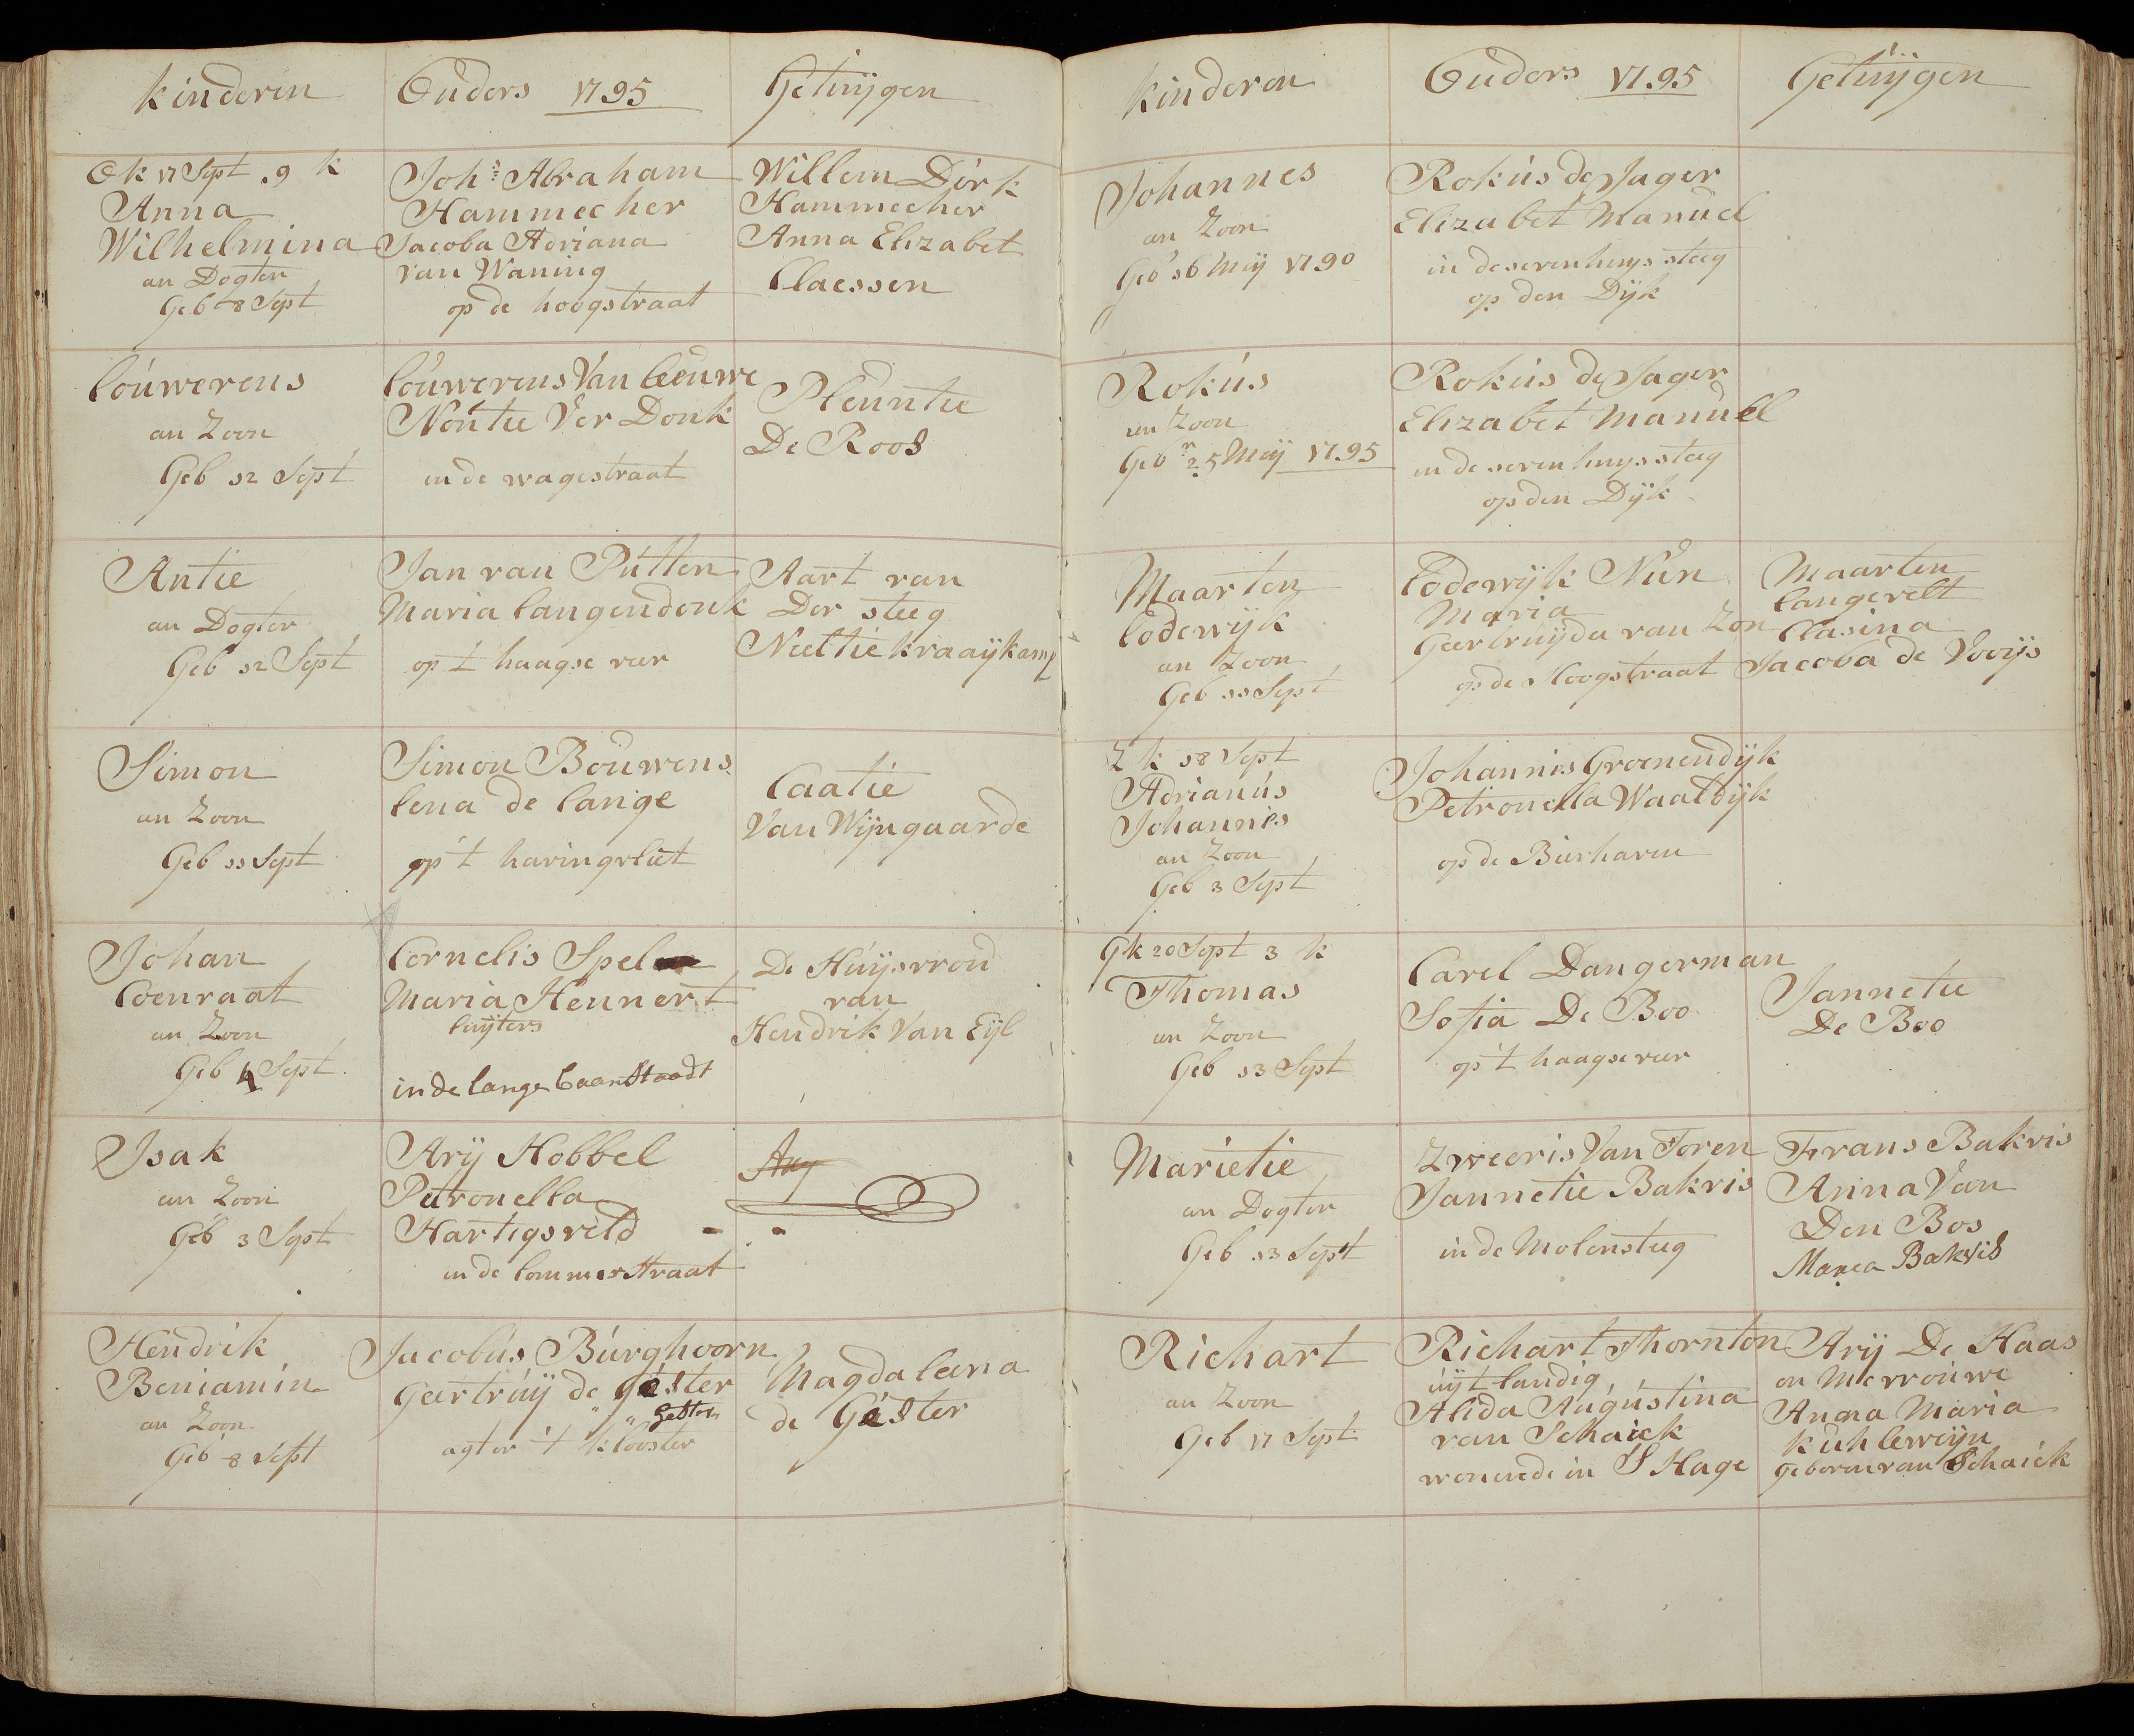 kinderen
Ouders 1795
Getuijgen
Ok 17 Sept . 9 k
Anna
Wilhelmina
an Dogter
Geb 8 Sept
Johs Abraham
Hammecher
Jacoba Adriana
van Waning
op de hoogstraat
Willem Dirk
Hammecher
Anna Elizabet
Claessen
Louwerens
an Zoon
Geb 12 Sept
Louwerens Van Leeuwe
Nöntie Ver Donk
in de wagestraat
Pleuntie
De Roos
Antie
an Dogter
Geb 12 Sept
Jan van Putten
Maria Langendonk
op 't haagse veer
Aart van
Der steeg
Neeltie kraaijkamp
Simon
an Zoon
Geb 11 Sept
Simon Bouwens
Lena de Lange
op 't haringvliet
Caatie
Van Wijngaarde
Johan
Coenraat
an Zoon
Geb 4 Sept
Cornelis Spel
Maria Hennert
Luijters
in de lange baan Staadt
De Huijsvrou
van
Hendrik Van Eijl
Isak
an Zoon
Geb 3 Sept
Arij Hobbel
Petronella
Hartigsveld
in de lommerstraat
Arij
Hendrik
Beniamin
an Zoon
Geb 8 Sept
Jacobus Burghoorn
Geertruij de Gester
" " Gester
agter 't klooster
Magdalena
de Gester
kinderen
Ouders 1795
Getuijgen
Johannes
an Zoon
Geb 16 Meij 1790
Rokus de Jager
Elizabet Manuel
in de sevenhuijs steeg
op den Dijk
Rokus
an Zoon
Geb n 25 Meij 1795
Rokus de Jager
Elizabet Manuel
in de seven huijs steeg
op den Dijk
Maarten
Lodewijk
an Zoon
Geb 11 Sept
Lodewijk Nün
Maria
Geertruijda van Zon
op de Hoogstraat
Maarten
Langevelt
Clasina
Jacoba de Vooijs
Z k 18 Sept
Adrianus
Johannis
an Zoon
Geb 3 Sept
Johannis Groenendijk
Petronella Waaldijk
op de Bierhaven
Gk 20 Sept 3 k
Thomas
an Zoon
Geb 13 Sept
Carel Dangerman
Sofia De Boo
op 't haagse veer
Jannetie
De Boo
Marietie
an Dogter
Geb 13 Sept
Zweeris Van Toren
Jannetie Bakvis
in de Molensteeg
Frans Bakvis
Anna Van
Den Bos
Maria Bakvis
Richart
an Zoon
Geb 17 Sept
Richart Thornton
uijtlandig,
Alida Augustina
van Schaick
wonende in S Hage
Arij De Haas
en Mevrouwe
Anna Maria
Kuhleweijn
geboren van Schaick